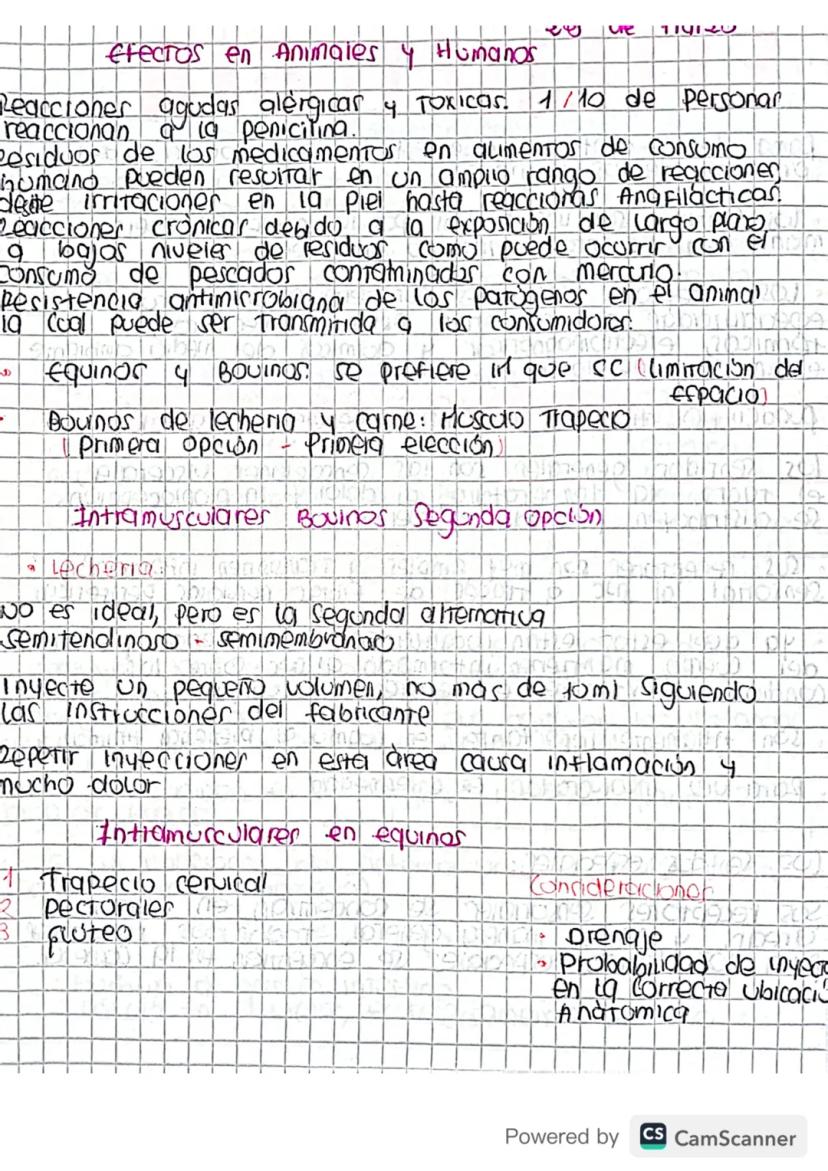 Efectos en Animales y Humanos
Reacciones agudas alérgicas y Toxicas. 1/10 de personas
reaccionan a la penicilina.
Residuos de los medicamentos en alimentos de consumo
humano pueden resultar en un amplio rango de reacciones
desde irritaciones en la piel hasta reaccionas Anafilácticas.
Reacciones crónicas debido a la exposición de largo plazo
a bajos niveles de residuos como puede ocurrir con el
consumo de pescados contaminados con mercurio.
Resistencia antimicrobiana de los patógenos en el animal
la cual puede ser Transmitida a los consumidores.
Equinos y Bovinos: se prefiere IM que SC (limitación del
espacio)
Bovinos de lecheria y carne: Musculo Trapecio
(Primera opción - Primera elección)
Intramusculares Bovinos Segunda opción
• Lecheria:
NO es ideal, pero es la segunda alternativa
semitendinoso - semimembranado
Inyecte un pequeño volumen, no mas de 10ml siguiendo
las instrucciones del fabricante
Repetir inyecciones en esta àrea causa inflamación y
mucho dolor
Intramusculares en equinos
1 Trapecio cervical
Consideraciones
2 pectorales
3 gluteo
• Drenaje
• Probabilidad de inyecc
en la correcta ubicació
Anàtomica
Powered by CS CamScanner